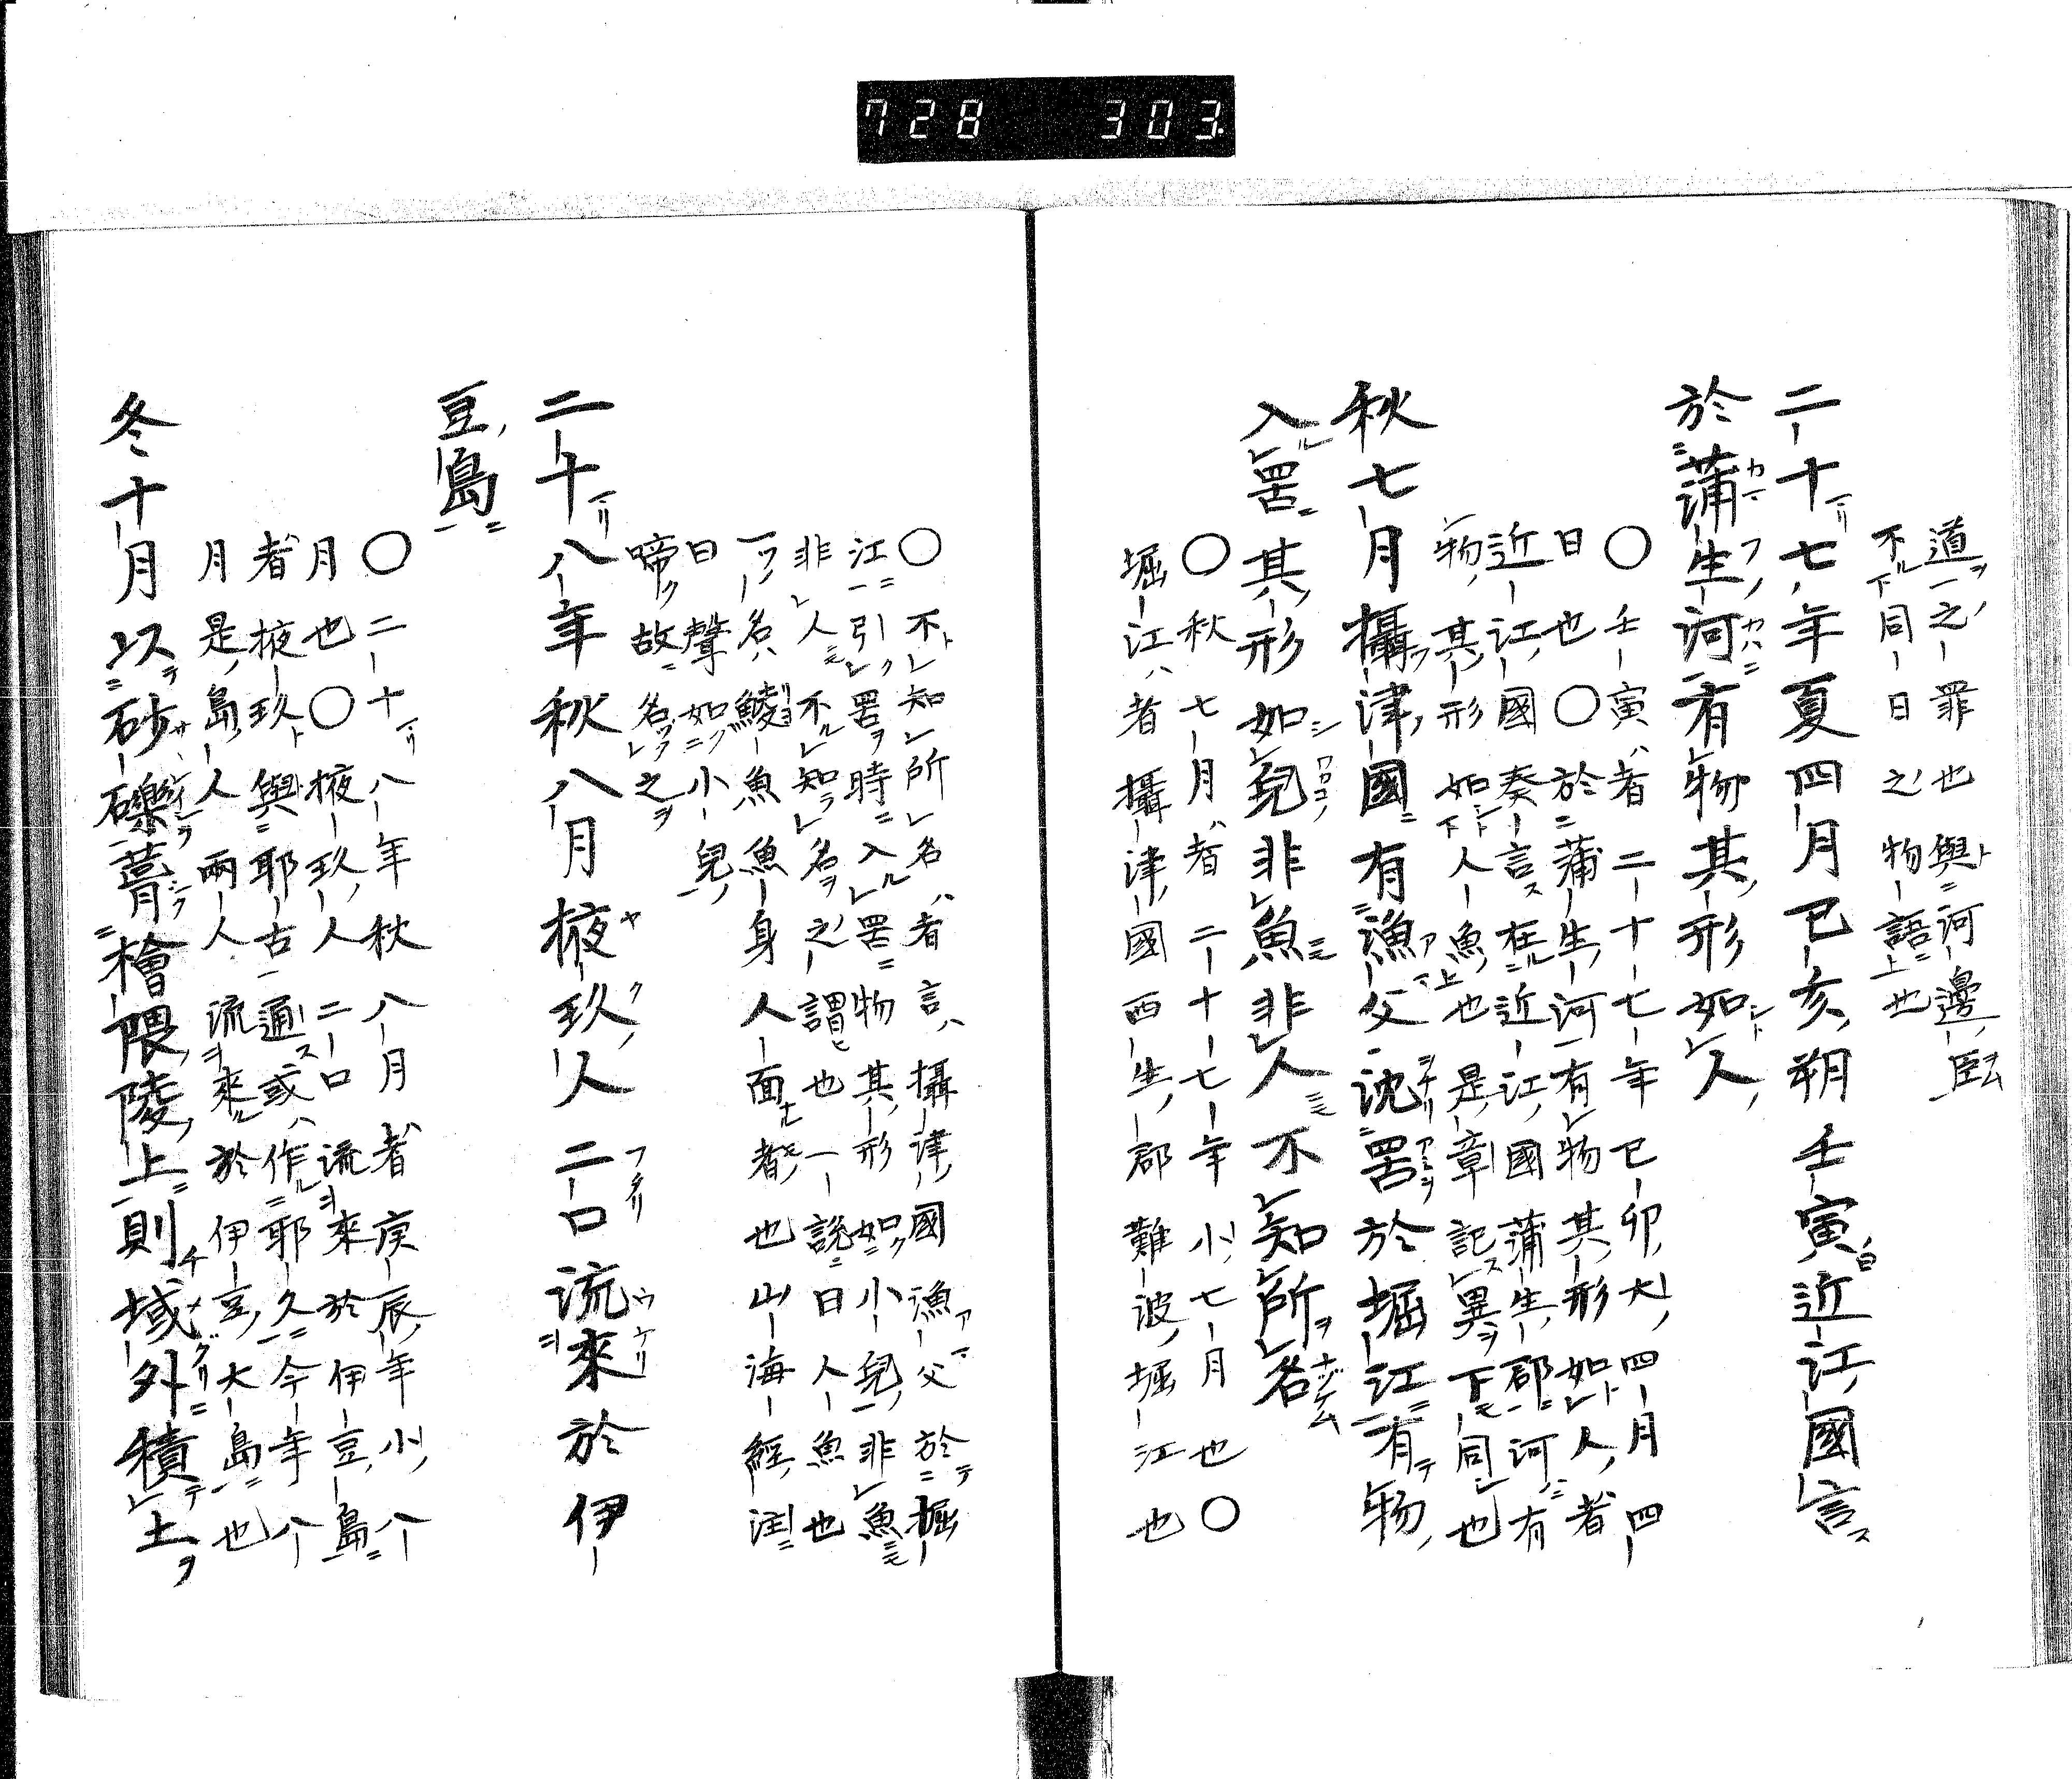 728 303
道之罪也與河邊臥
不同日之物語也
二十七年夏四月己亥朔壬寅近江國言
於蒲生河有物其形如人
〇壬寅者二十七年己卯大四月四
日也〇於蒲生河有物其形如人者
近江國奏言在近江國蒲生郡河有
物其形如人魚也是章記異下同也
秋七月攝津國有漁父沈罟於堀江有物
入罟其形如兒非魚非人不知所名
〇秋七月者二十七年小七月也〇
堀江者攝津國西生郡難波堀江也
〇不知所名者言攝津國漁父於堀
江引罟時入罟物其形如小兒非魚
非人不知名之謂也一說曰人魚也
一名鯪魚魚身人面者也山海經注
曰聲如小兒
啼故名之
二十八年秋八月掖玖人二口流來於伊
豆島
〇二十八年秋八月者庚辰年小八
月也〇掖玖人二口流來於伊豆島
者掖玖與耶古通或作耶久今年八
月是島人兩人流來於伊豆大島也
冬十月以砂礫葺檜隈陵上則域外積土